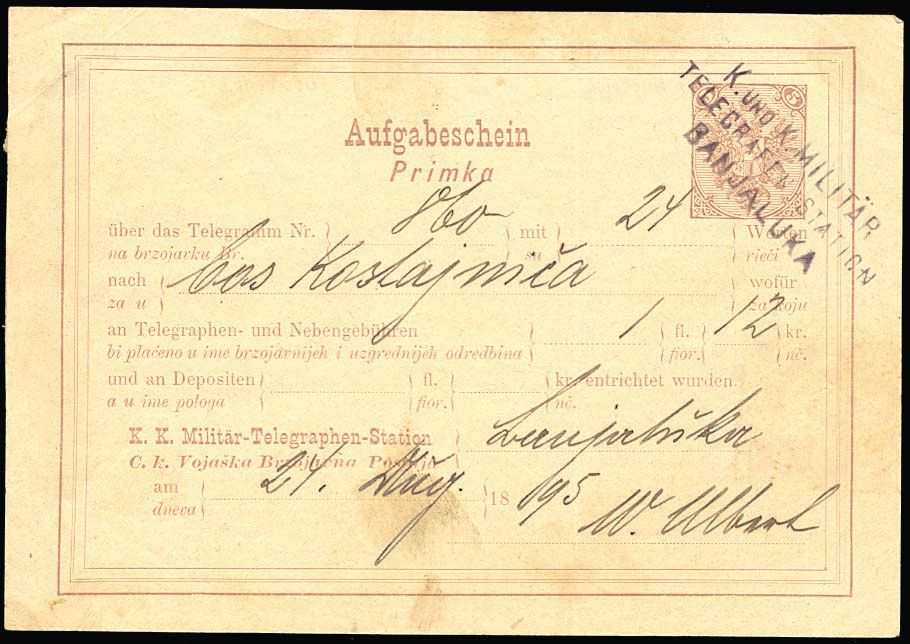 K. UND K. MILITÄR
TELEGRAFEN STATION
BANJALUKA
5
Aufgabeschein
Primka
über das Telegramm Nr. mit 24 Worten
na brzojavku Br. su rieči
nach Bos Kostajnića wofür
za u za koju
an Telegraphen- und Nebengebühren 1 fl. 12 kr.
bi plaćeno u ime brzojavnijeh i uzgrednijeh odredbina fior. nč.
und an Depositen fl. kr. entrichtet wurden.
a u ime pologa fior. nč.
K. K. Militär-Telegraphen-Station Banjaluka
C. k. Vojaška Brzojavna Postaja
am 24. Aug. 18 95
dneva
W. Albert